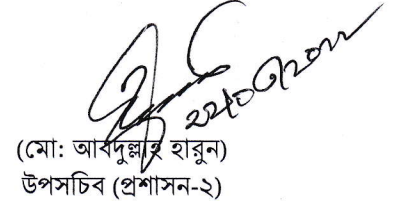 (মো: আবদুল্লাহ হারুন)
উপসচিব (প্রশাসন-২)